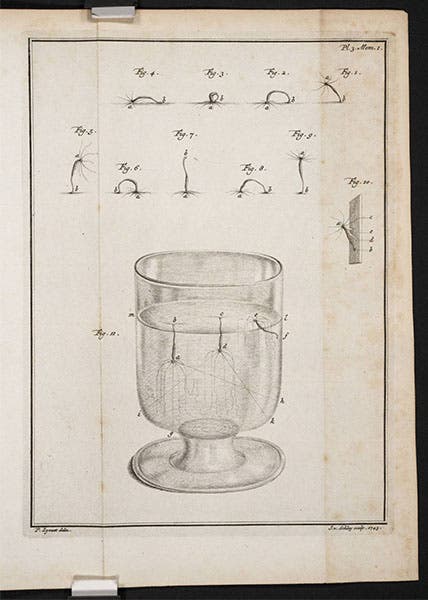 Pl. 3. Mem. 1.
Fig. 4. Fig. 3. Fig. 2. Fig. 1.
a b a a b a b
Fig. 5. Fig. 7. Fig. 9.
a b b a a b
Fig. 6. Fig. 8. Fig. 10.
b a a b a c e d b
Fig. 11.
m b c e l
f
a d
i h
k
g
P. Lyonet delin.
1745.